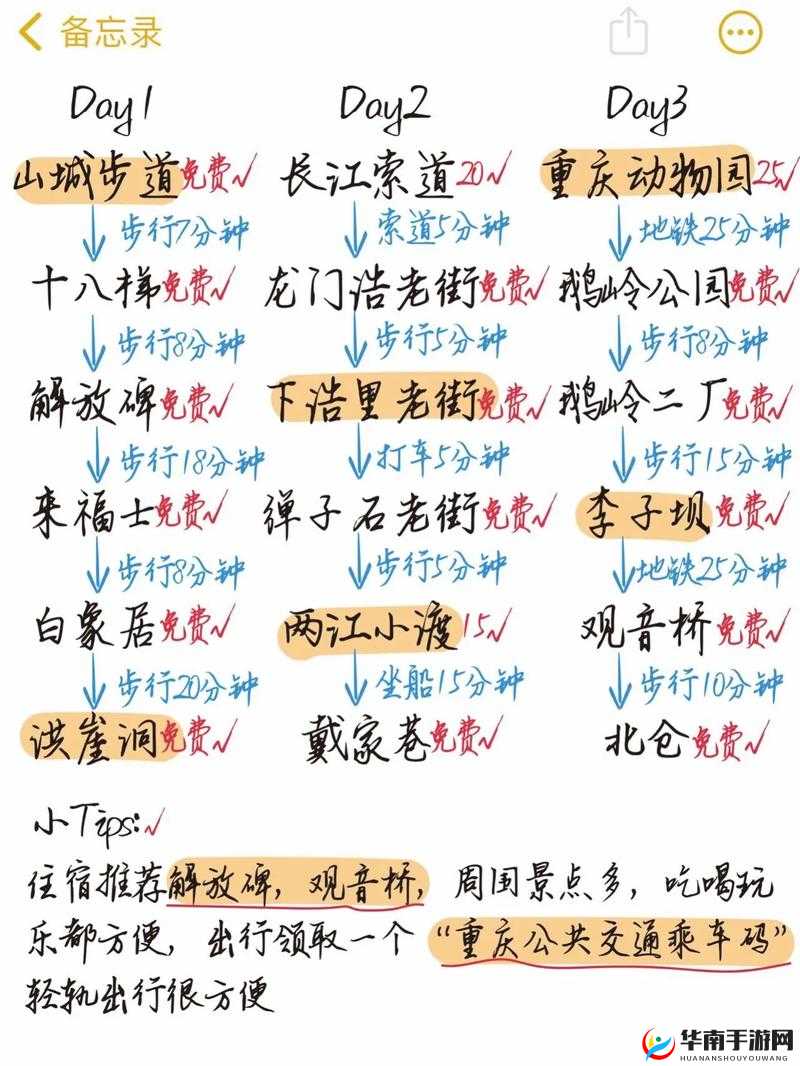 备忘录
Day1 Day2 Day3
山城步道免费 长江索道20 重庆动物园25
步行7分钟 索道5分钟 地铁25分钟
十八梯免费 龙门浩老街免费 鹅岭公园免费
步行8分钟 步行5分钟 步行8分钟
解放碑免费 下浩里老街免费 鹅岭二厂免费
步行18分钟 打车5分钟 步行15分钟
来福士免费 弹子石老街免费 李子坝免费
步行8分钟 步行5分钟 地铁25分钟
白象居免费 两江小渡15 观音桥免费
步行20分钟 坐船15分钟 步行10分钟
洪崖洞免费 戴家巷免费 北仓免费
小Tips:
住宿推荐解放碑，观音桥，周围景点多，吃喝玩
乐都方便，出行领取一个“重庆公共交通乘车码”
轻轨出行很方便
华南手游网
HUANANSHOUYOUWANG